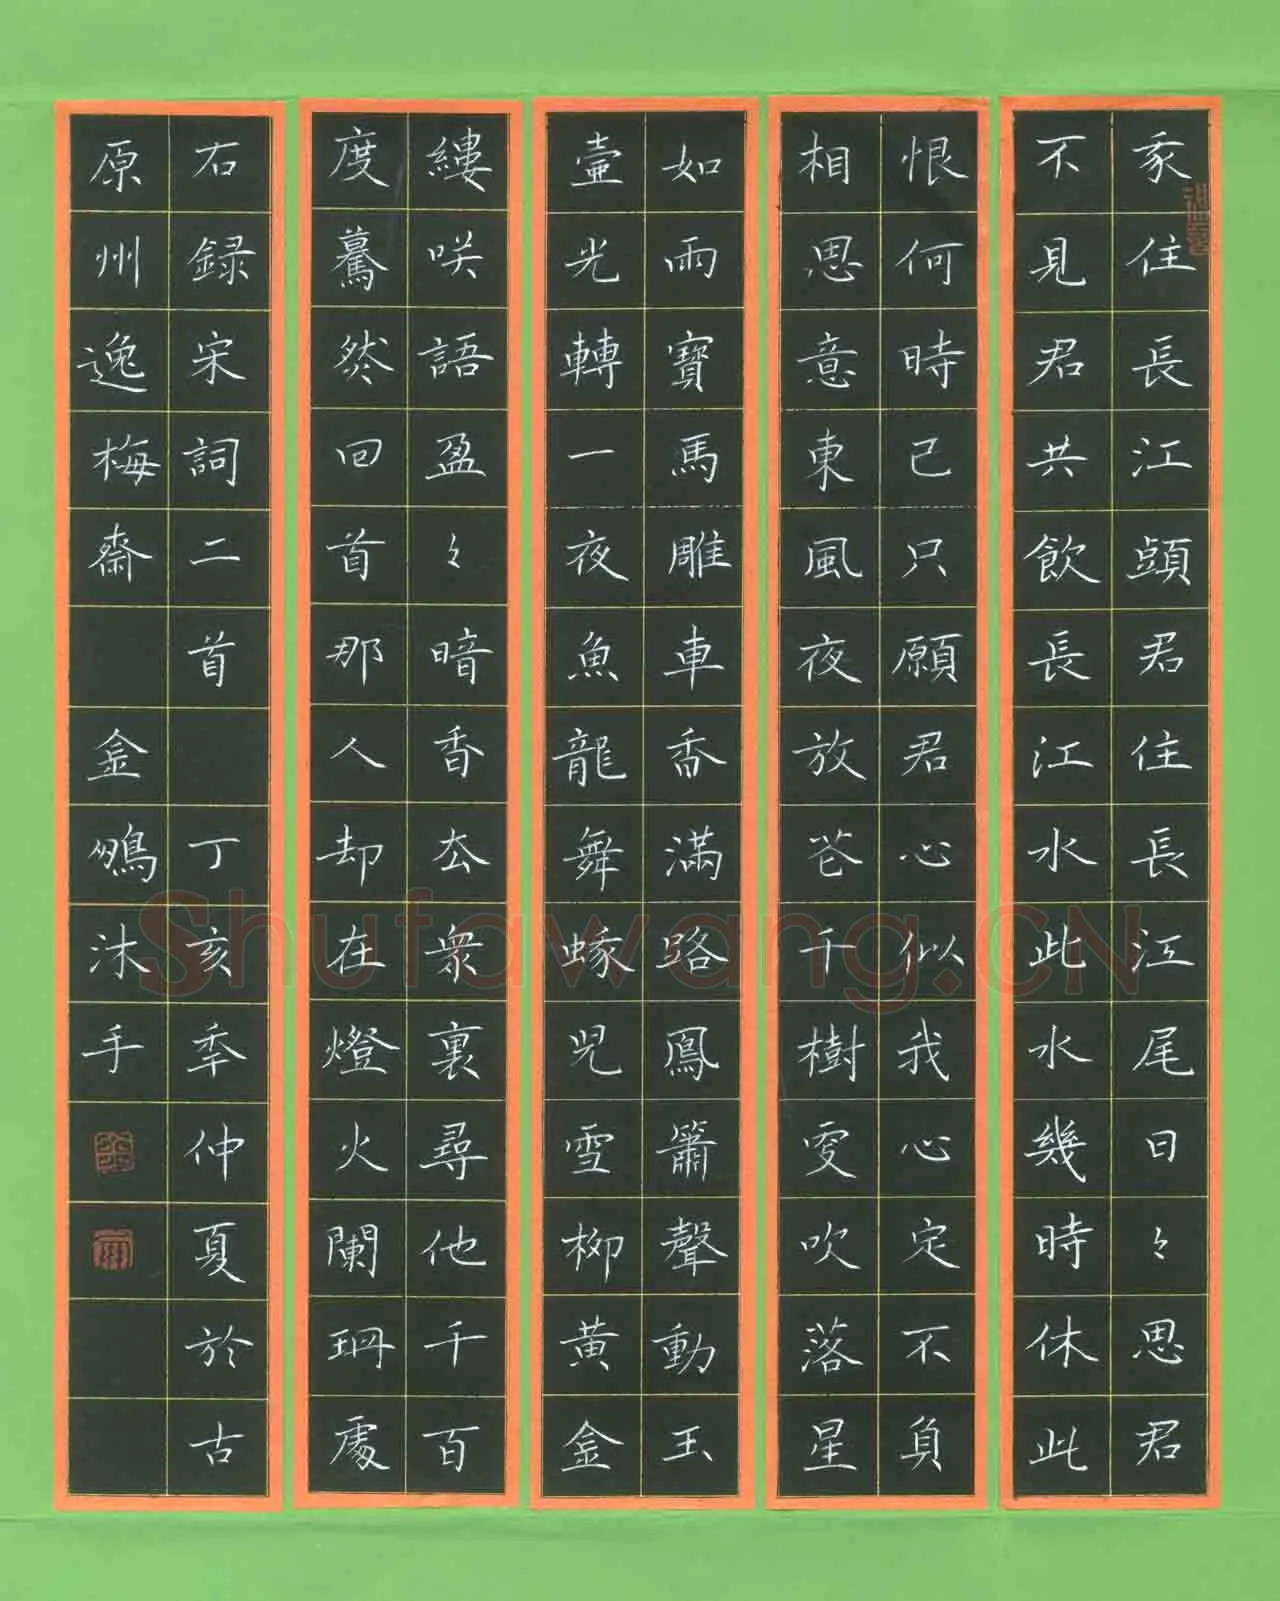 我住長江頭君住長江尾日々思君
不見君共飲長江水此水幾時休此
恨何時已只願君心似我心定不負
相思意東風夜放花千樹更吹落星
如雨寶馬雕車香滿路鳳簫聲動玉
壺光轉一夜魚龍舞蛾兒雪柳黃金
縷咲語盈々暗香去衆裏尋他千百
度驀然回首那人却在燈火闌珊處
右録宋詞二首 丁亥年仲夏於古
原州逸梅齋 金鵬沐手
Shufawang.CN